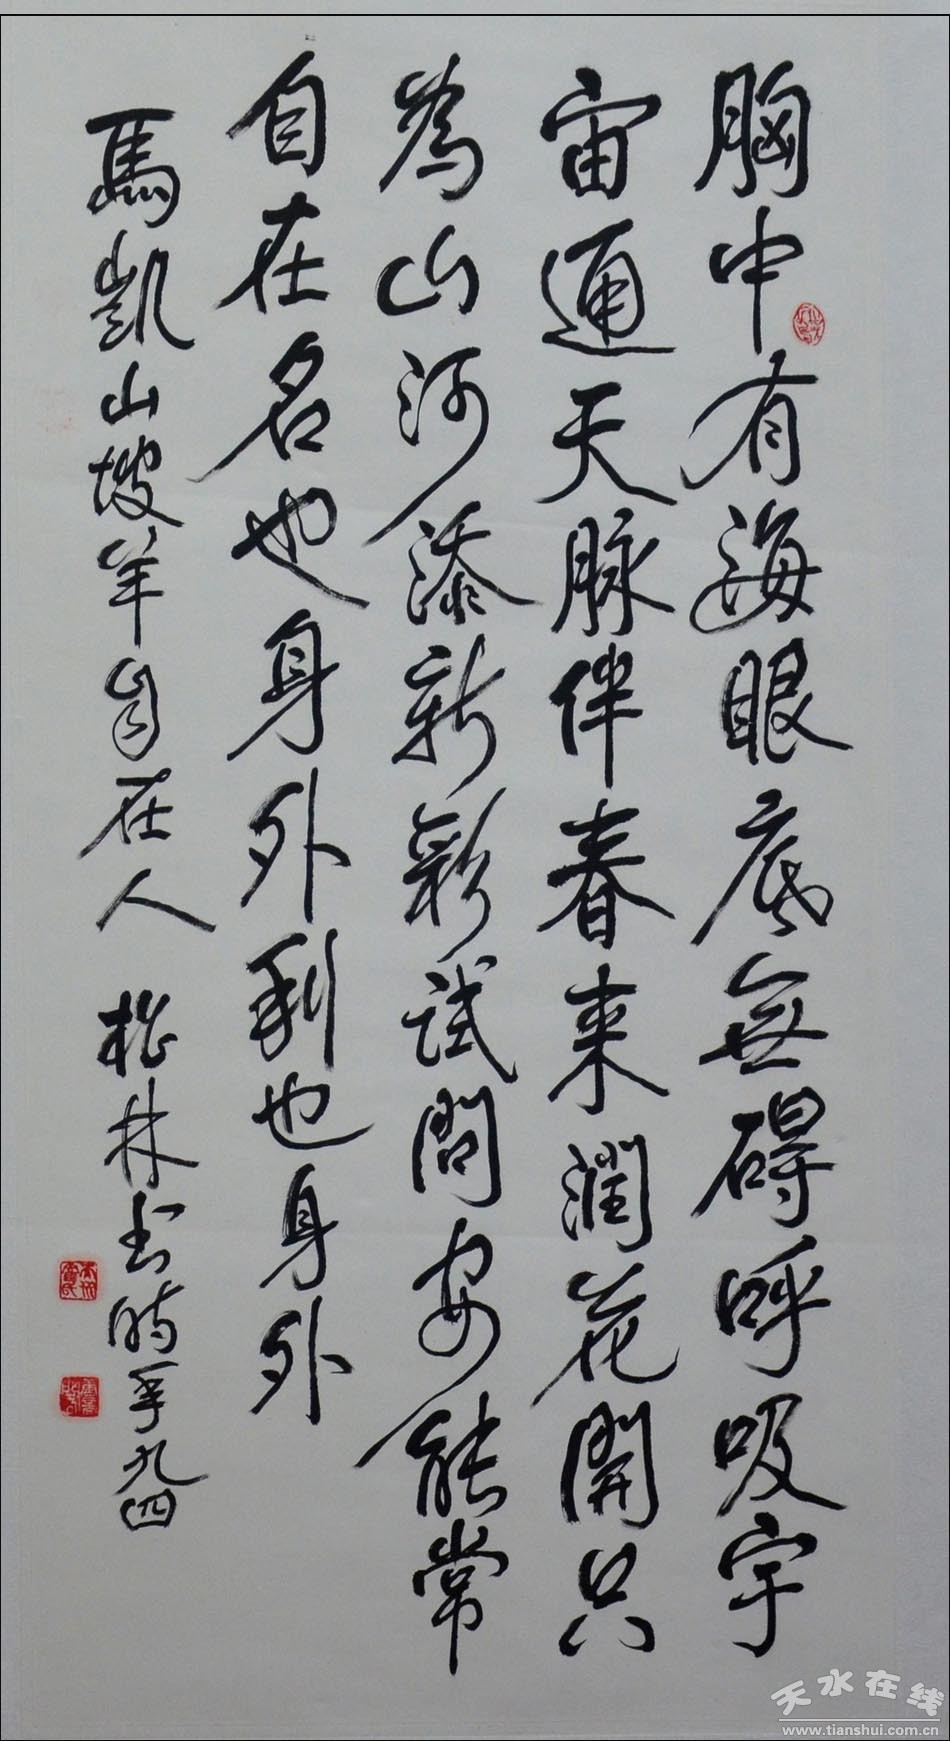 胸中有海眼底無碍呼吸宇
宙通天脉伴春来潤花開只
為山河添新彩試問安能常
自在名也身外利也身外
馬凯山坡羊自在人 松林书時年九四
天水在线
www.tianshui.com.cn